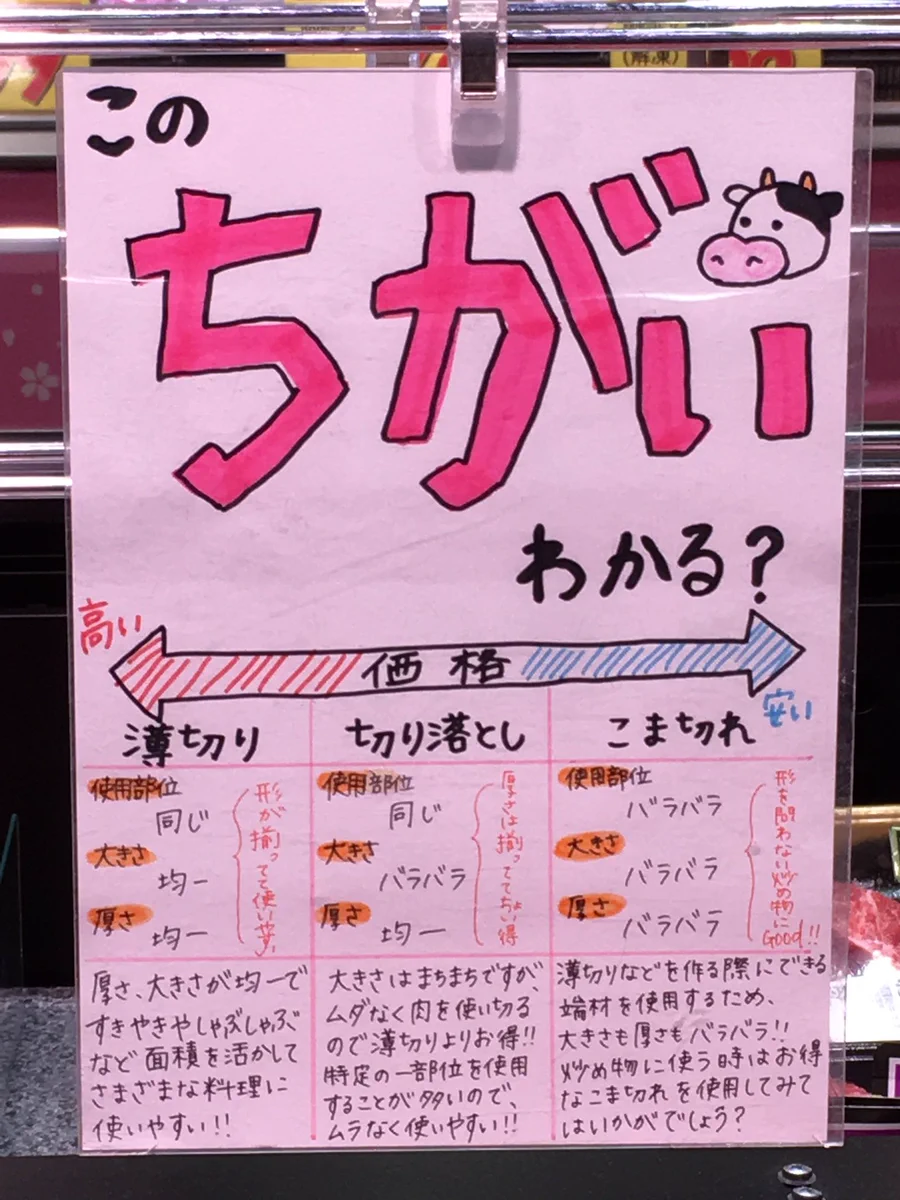 この
ちがい
わかる?
高い
価格
安い
薄切り
使用部位
同じ
大きさ
均一
厚さ
均一
形が揃ってて使いやすい
厚さ、大きさが均一で
すきやきやしゃぶしゃぶ
など面積を活かして
さまざまな料理に
使いやすい!!
切り落とし
使用部位
同じ
大きさ
バラバラ
厚さ
均一
厚さは揃っててちょい得
大きさはまちまちですが、
ムダなく肉を使い切る
ので薄切りよりお得!!
特定の一部位を使用
することが多いので、
ムラなく使いやすい!!
こま切れ
使用部位
バラバラ
大きさ
バラバラ
厚さ
バラバラ
形を問わない炒め物に
Good!!
薄切りなどを作る際にできる
端材を使用するため、
大きさも厚さもバラバラ!!
炒め物に使う時はお得
なこま切れを使用してみて
はいかがでしょう?
(解凍)